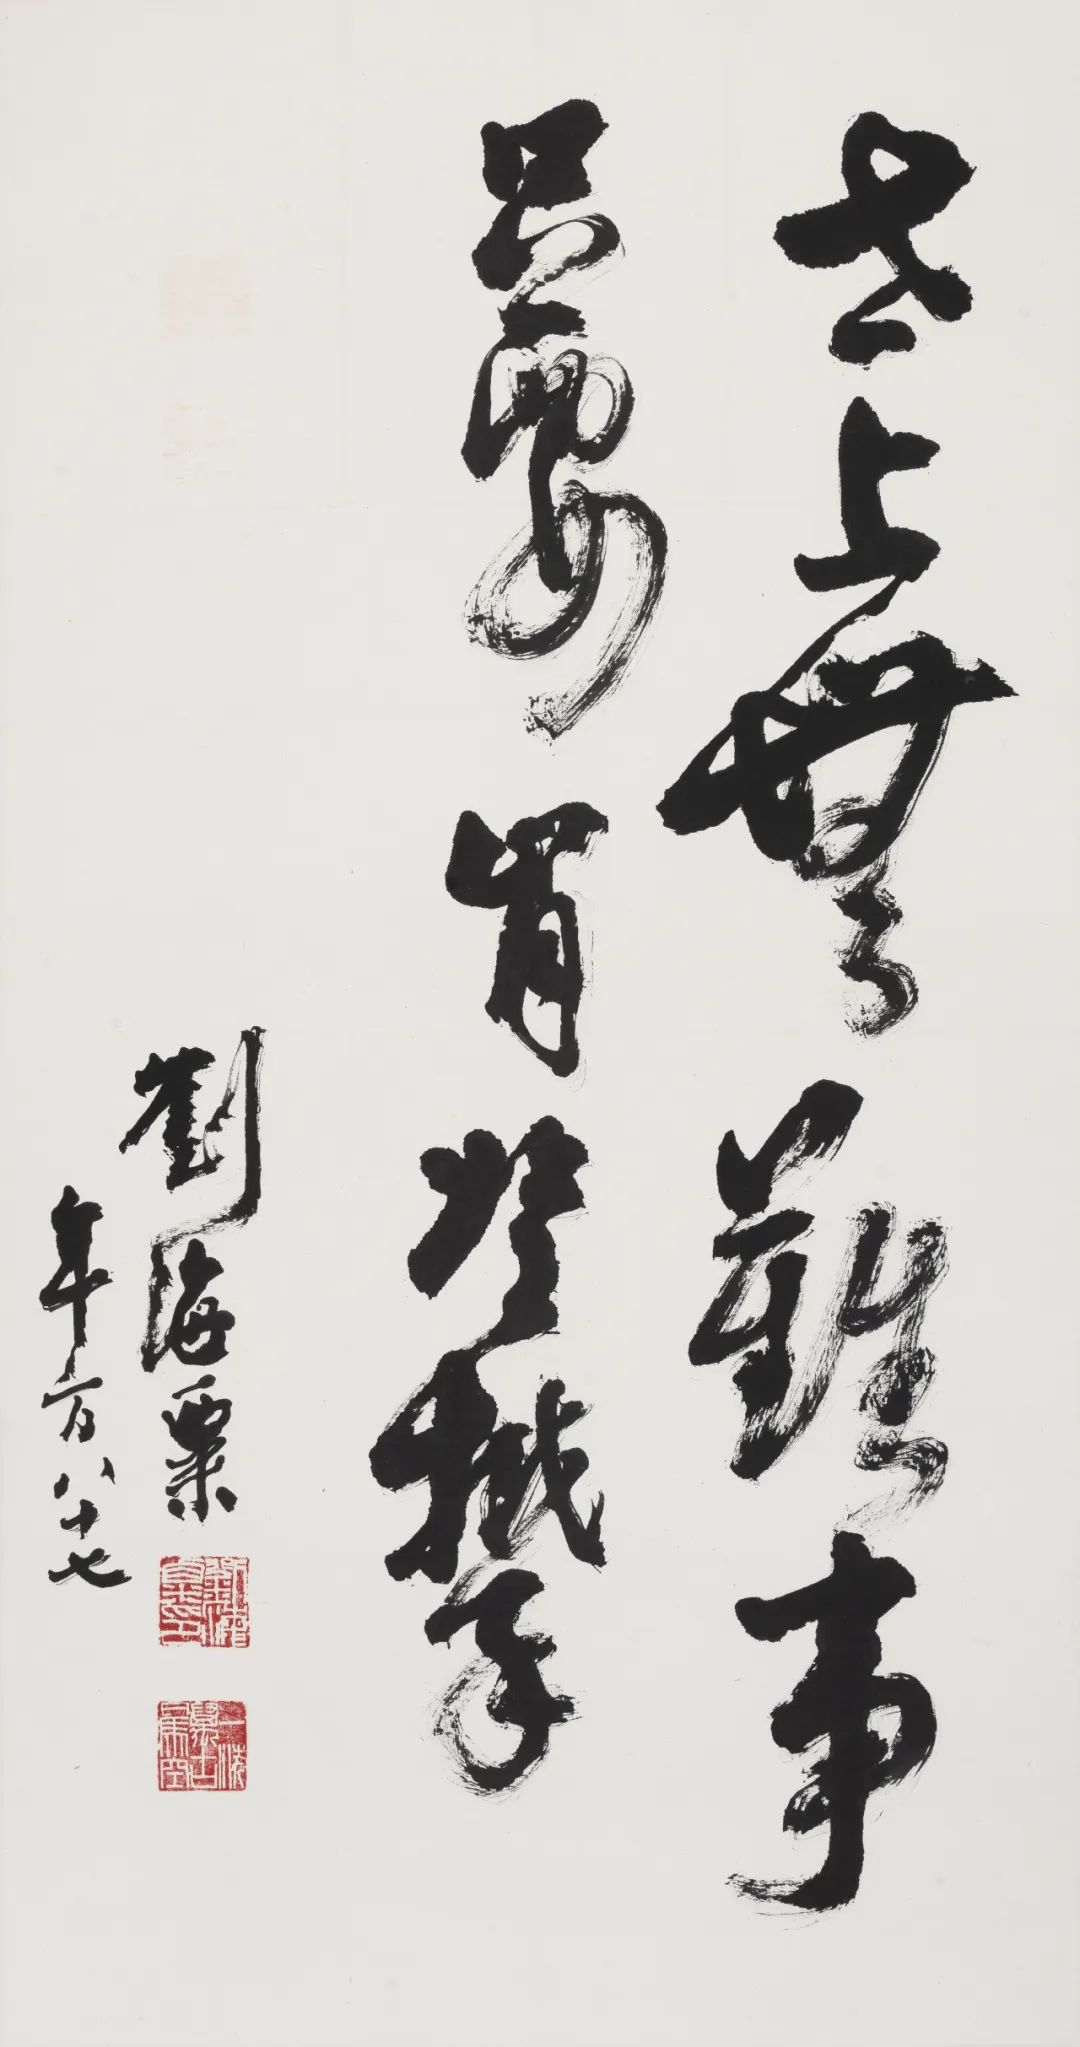 世上無難事
只要肯登攀
劉海粟
年方八十七